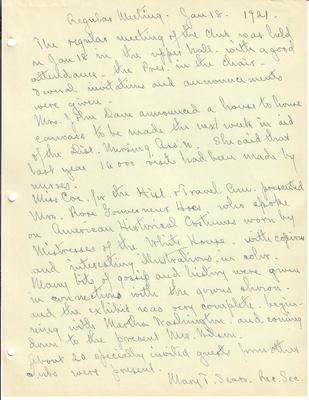 Regular Meeting. Jan 18. 1921.
The regular meeting of the Club was held
on Jan 18 in the upper hall. with a good
attendance. the Pres. in the chair.
Several invitations and announcements
were given.
Mrs. John Dave announced a house to house
canvass to be made the next week in aid
of the Dist. Nursing Ass'n. She said that
last year 16000 visits had been made by
nurses.
Miss Coe. for the Hist. & Travel Com. presented
Mrs. Rose Gouverneur Hoes. who spoke
on American Historical Costumes worn by
Mistresses of the White House. with copious
and interesting illustrations. in color.
Many bits of gossip and history were given
in connection with the gowns shown.
and the exhibit was very complete. begin-
ning with Martha Washington. and coming
down to the present Mrs. Wilson.
About 20 specially invited guests from other
clubs were present.
Mary T. Sears. Rec. Sec.